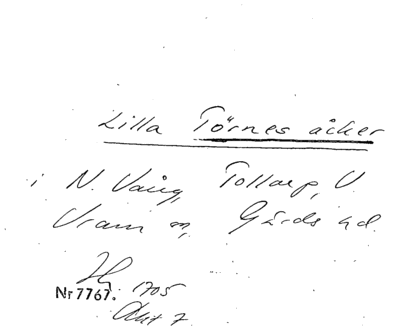 Lilla Törnes åcker
i N. Vång, Tollarp, V.
Vram sn, Gärds hd.
1705
Nr 7767.
Akt 7